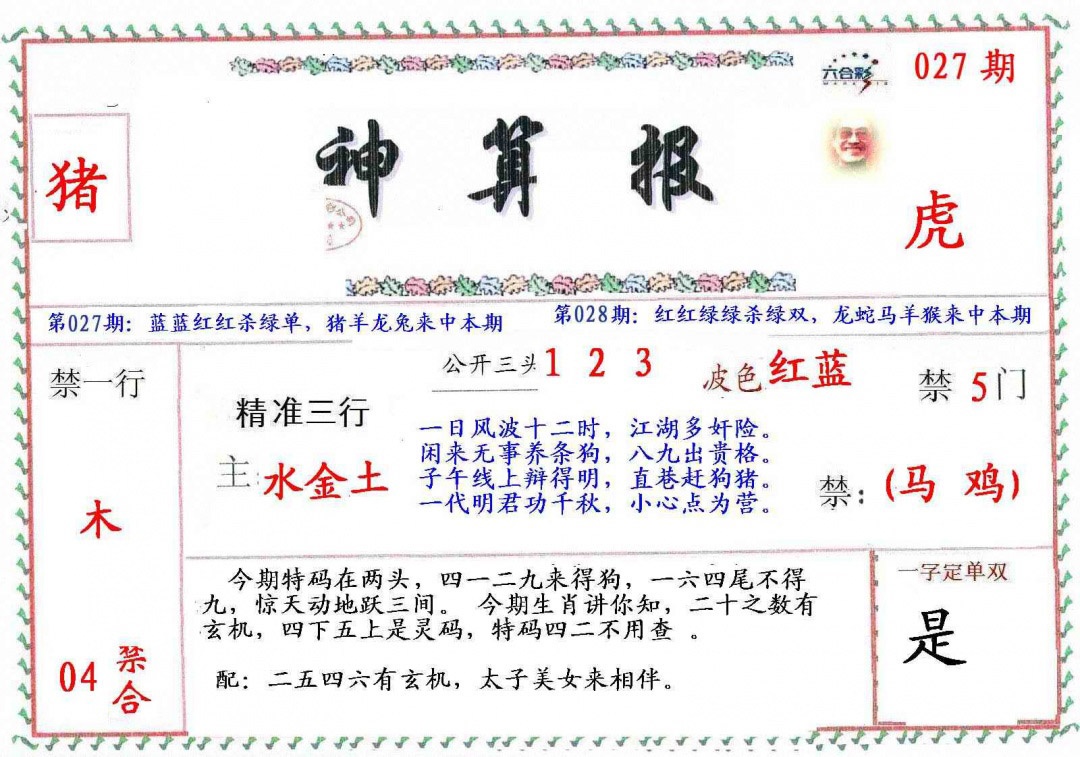 六合彩
027 期
猪
神算报
虎
第027期：蓝蓝红红杀绿单，猪羊龙兔来中本期
第028期：红红绿绿杀绿双，龙蛇马羊猴来中本期
禁一行
木
04 禁合
精准三行
主：水金土
公开三头 1 2 3
波色 红蓝
一日风波十二时，江湖多奸险。
闲来无事养条狗，八九出贵格。
子午线上辩得明，直巷赶狗猪。
一代明君功千秋，小心点为营。
禁 5 门
禁：(马 鸡)
今期特码在两头，四一二九来得狗，一六四尾不得
九，惊天动地跃三间。 今期生肖讲你知，二十之数有
玄机，四下五上是灵码，特码四二不用查 。
配：二五四六有玄机，太子美女来相伴。
一字定单双
是